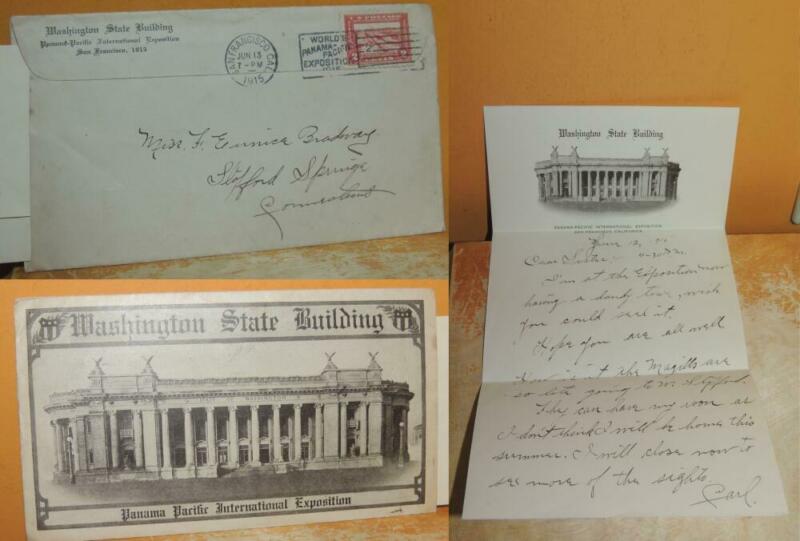 Washington State Building
Panama-Pacific International Exposition
San Francisco, 1915
SAN FRANCISCO, CAL.
JUN 13
7-PM
1915
WORLD'S
PANAMA-
PACIFIC
EXPOSITION
Miss. F. Eunice Bradway
Stafford Springs
Connecticut
Washington State Building
Panama Pacific International Exposition
Washington State Building
PANAMA-PACIFIC INTERNATIONAL EXPOSITION
SAN FRANCISCO, CALIFORNIA
June 12,
Dear Sister;-
I'm at the Exposition now
having a dandy time, wish
you could see it.
Hope you are all well
How is it the Magills are
so late going to W. Stafford.
They can have my room as
I don't think I will be home this
summer. I will close now to
see more of the sights.
Carl.